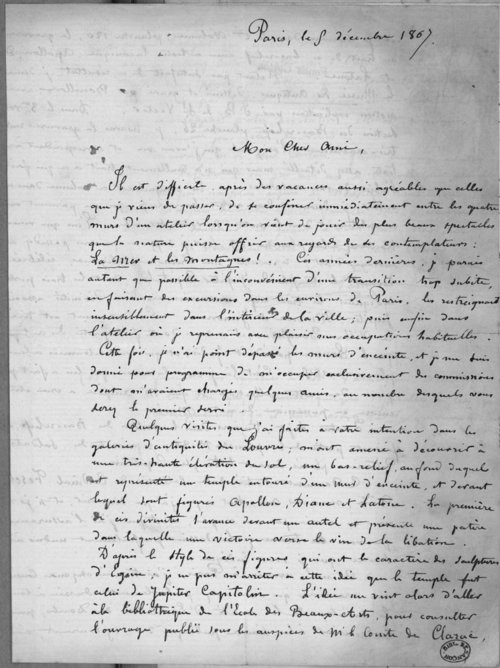 Paris, le 5 décembre 1867.
Mon Cher Ami,
Il est difficile après des vacances aussi agréables que celles
que je viens de passer, de se confiner immédiatement entre les quatre
murs d'un atelier lorsqu'on vient de jouir des plus beaux spectacles
que la nature puisse offrir aux regards de ses contemplateurs :
La Mer et les montagnes ! . Ces années dernières, je parais
autant que possible à l'inconvénient d'une transition trop subite,
en faisant des excursions dans les environs de Paris, les restreignant
insensiblement dans l'intérieur de la ville ; puis enfin dans
l'atelier où je reprenais avec plaisir mes occupations habituelles.
Cette fois, je n'ai point dépassé les murs d'enceinte, et je me suis
donné pour programme de m'occuper exclusivement des commissions
dont m'avaient chargé quelques amis, au nombre desquels vous
serez le premier servi.
Quelques visites que j'ai faites à votre intention dans les
galeries d'antiquités du Louvre, m'ont amené à découvrir à
une très-haute élévation du sol, un bas-relief, au fond duquel
est représenté un temple entouré d'un mur d'enceinte, et devant
lequel sont figurés Apollon, Diane et Latone. La première
de ces divinités s'avance devant un autel et présente une patère
dans laquelle une victoire verse le vin de la libation.
D'après le style de ces figures qui ont le caractère des sculptures
d'Egine, je ne pus m'arrêter à cette idée que le temple fut
celui de Jupiter Capitolin. L'idée me vint alors d'aller
à la bibliothèque de l'Ecole des Beaux-Arts, pour consulter
l'ouvrage publié sous les auspices de Mr le Comte de Clarac,